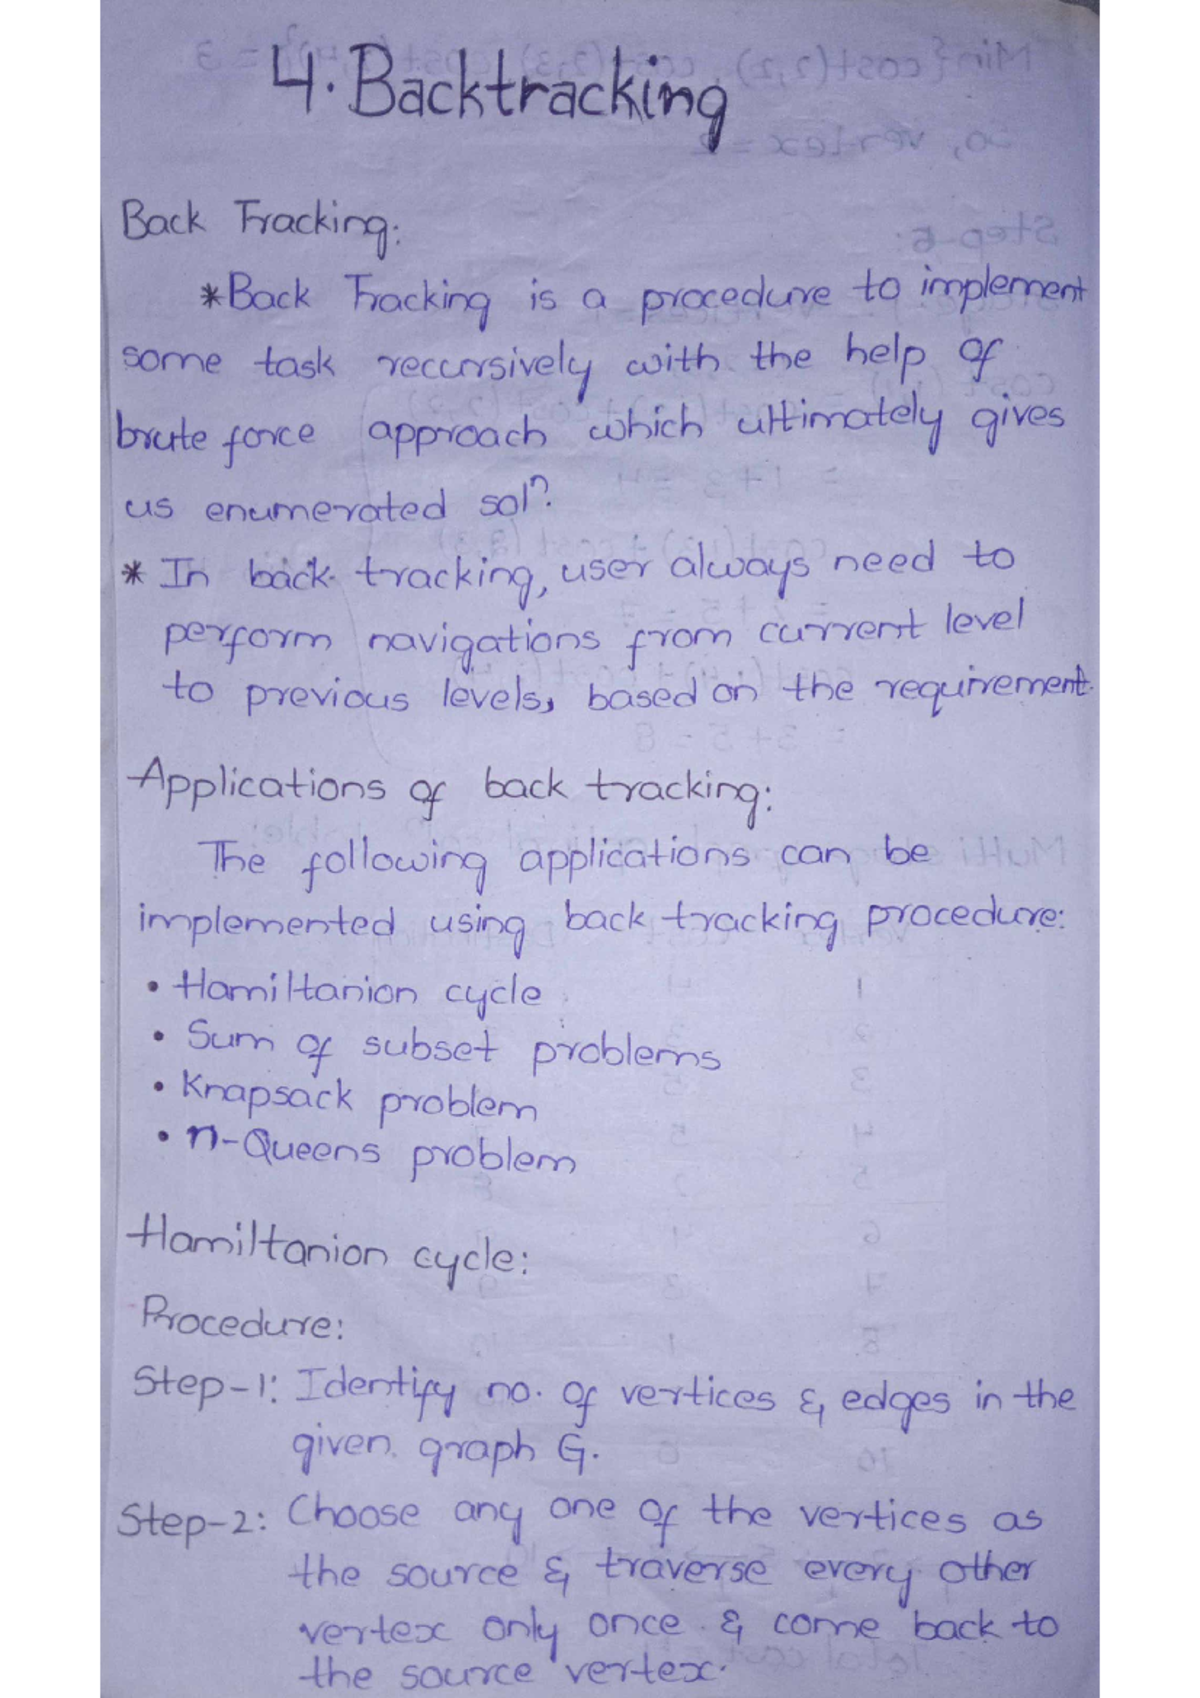 4. Backtracking
Back Tracking:
* Back Tracking is a procedure to implement
some task recursively with the help of
brute force approach which ultimately gives
us enumerated solⁿ.
* In back tracking, user always need to
perform navigations from current level
to previous levels, based on the requirement.
Applications of back tracking:
The following applications can be
implemented using back tracking procedure:
• Hamiltanion cycle
• Sum of subset problems
• Knapsack problem
• n-Queens problem
Hamiltanion cycle:
Procedure:
Step-1: Identify no. of vertices & edges in the
given graph G.
Step-2: Choose any one of the vertices as
the source & traverse every other
vertex only once & come back to
the source vertex.